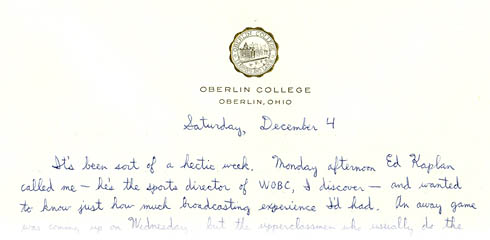 OBERLIN COLLEGE
OBERLIN, OHIO
Saturday, December 4
It's been sort of a hectic week. Monday afternoon Ed Kaplan
called me – he's the sports director of WOBC, I discover – and wanted
to know just how much broadcasting experience I'd had. An away game
was coming up on Wednesday, but the upperclassmen who usually do the